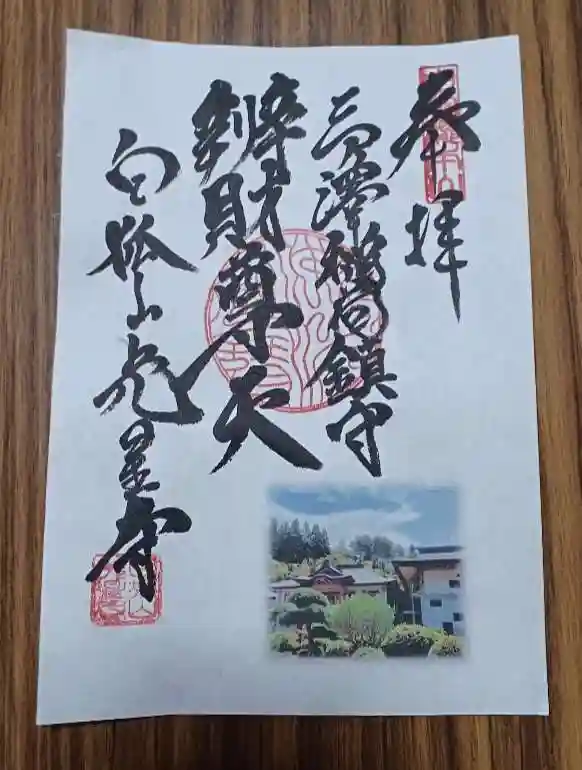 奉拝
三ヶ澤 鎮守
辨財尊天
白狐山光星寺